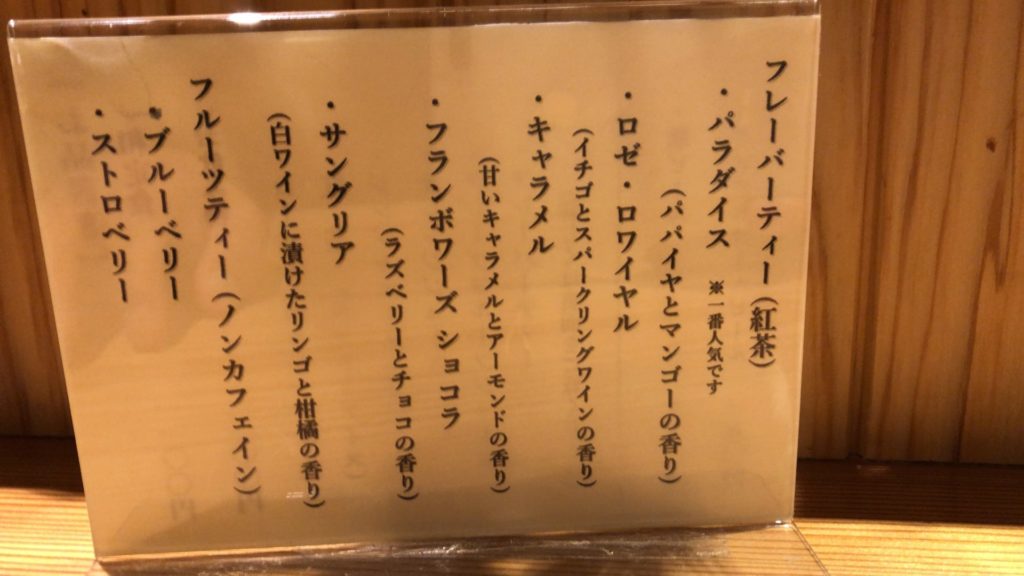 フレーバーティー(紅茶)
・パラダイス ※一番人気です
(パパイヤとマンゴーの香り)
・ロゼ・ロワイヤル
(イチゴとスパークリングワインの香り)
・キャラメル
(甘いキャラメルとアーモンドの香り)
・フランボワーズ ショコラ
(ラズベリーとチョコの香り)
・サングリア
(白ワインに漬けたリンゴと柑橘の香り)
フルーツティー(ノンカフェイン)
・ブルーベリー
・ストロベリー